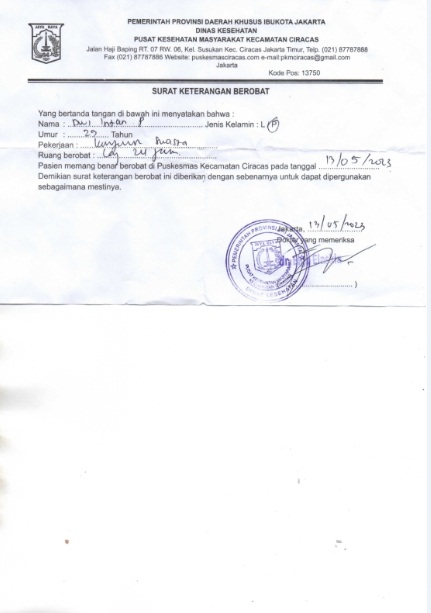 JAYA RAYA
PEMERINTAH PROVINSI DAERAH KHUSUS IBUKOTA JAKARTA
DINAS KESEHATAN
PUSAT KESEHATAN MASYARAKAT KECAMATAN CIRACAS
Jalan Haji Baping RT. 07 RW. 06, Kel. Susukan Kec. Ciracas Jakarta Timur, Telp. (021) 87787868
Fax (021) 87787886 Website: puskesmasciracas.com e-mail:pkmciracas@gmail.com
Jakarta
Kode Pos: 13750
SURAT KETERANGAN BEROBAT
Yang bertanda tangan di bawah ini menyatakan bahwa :
Nama : Dwi Intan P Jenis Kelamin : L (P)
Umur : 25 Tahun
Pekerjaan :
Ruang berobat : 24 jam
Pasien memang benar berobat di Puskesmas Kecamatan Ciracas pada tanggal 13/05/2023
Demikian surat keterangan berobat ini diberikan dengan sebenarnya untuk dapat dipergunakan
sebagaimana mestinya.
Jakarta, 13/05/2023
Dokter yang memeriksa